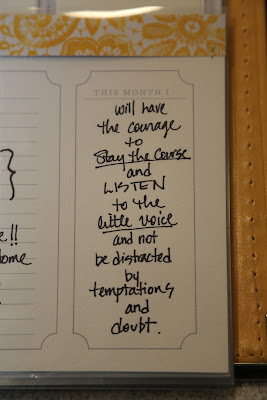 THIS MONTH I:
will have
the courage
to
Stay the Course
and
LISTEN
to the
little voice
and not
be distracted
by
temptations
and
doubt.
}
e!!
ome